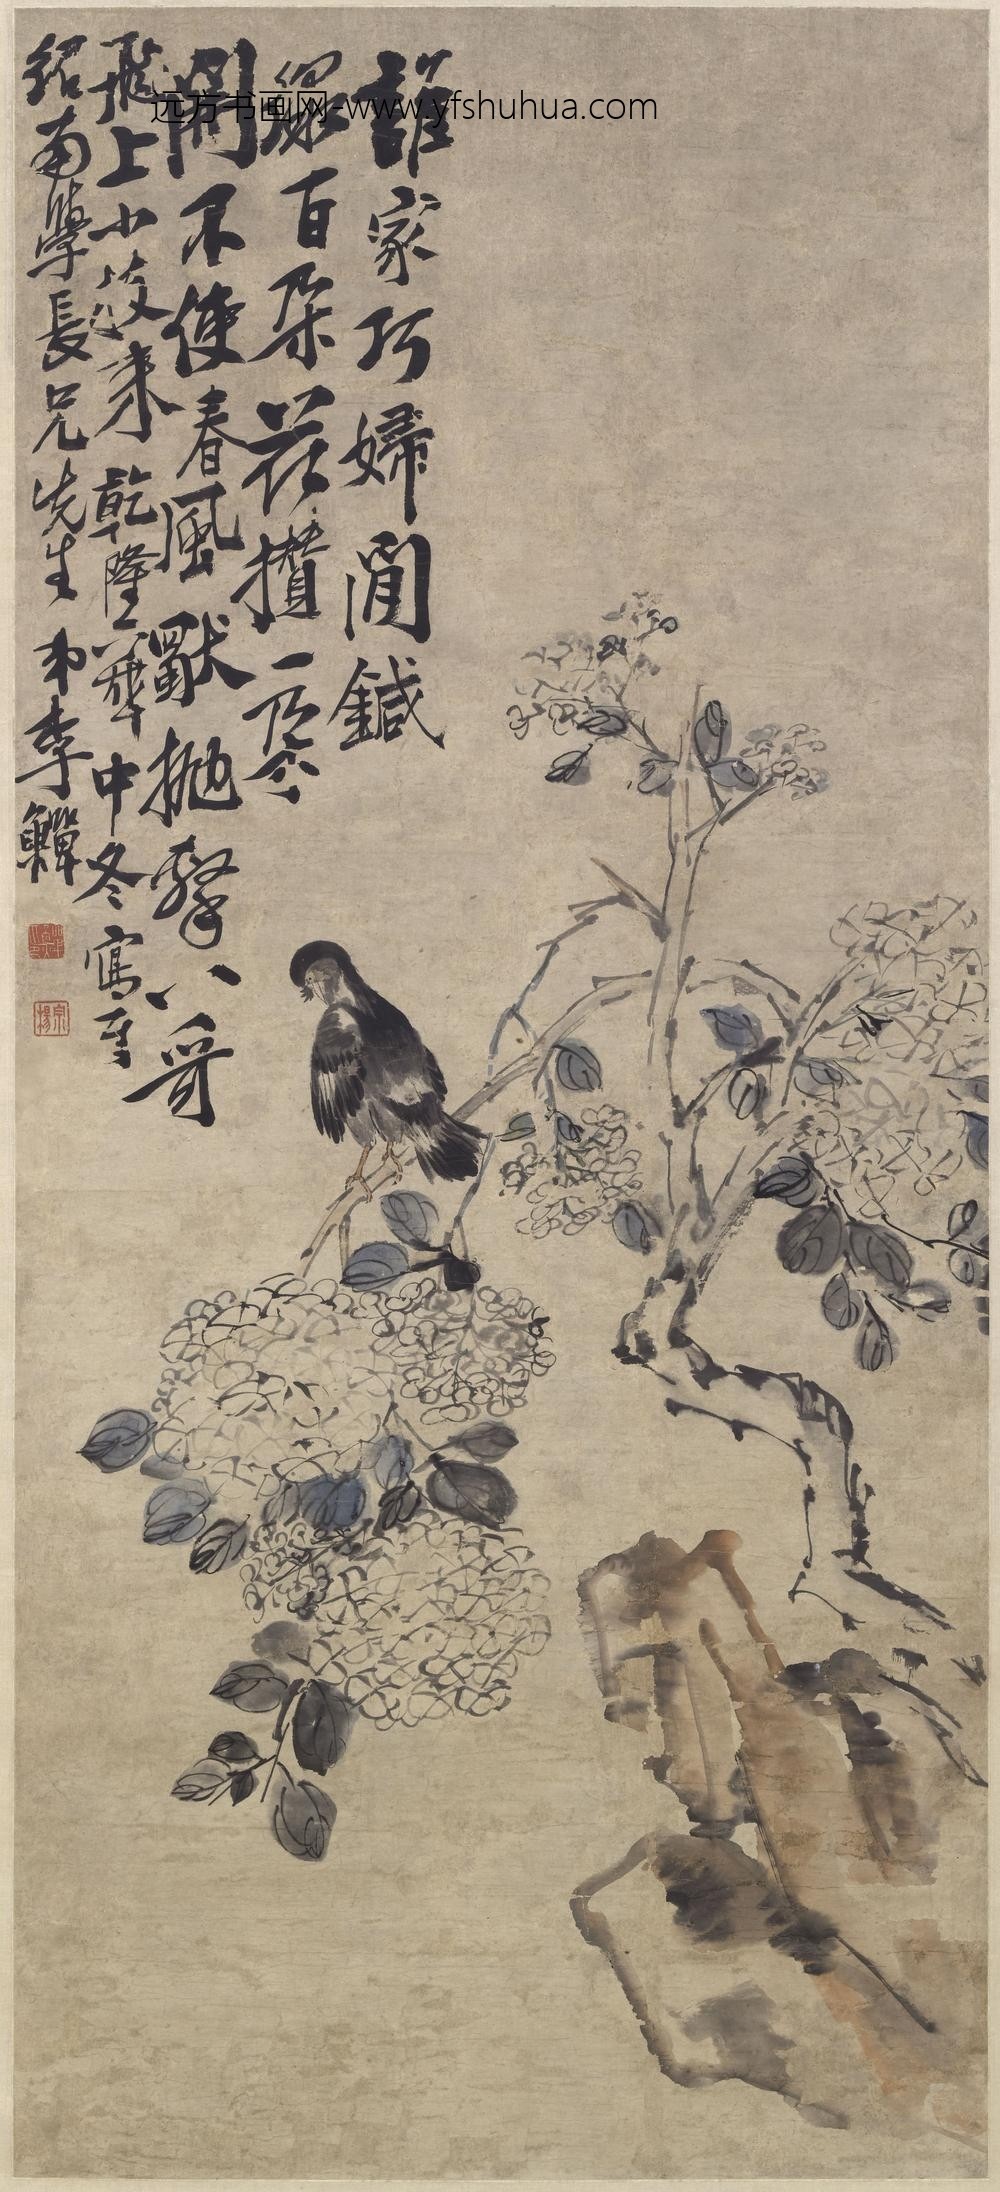 誰家巧婦閒鍼
線百朵花攢一
開不使春風拋八哥
飛上小枝來乾隆中冬寫
紹南學長兄先生弟李鱓
远方书画网-www.yfshuhua.com